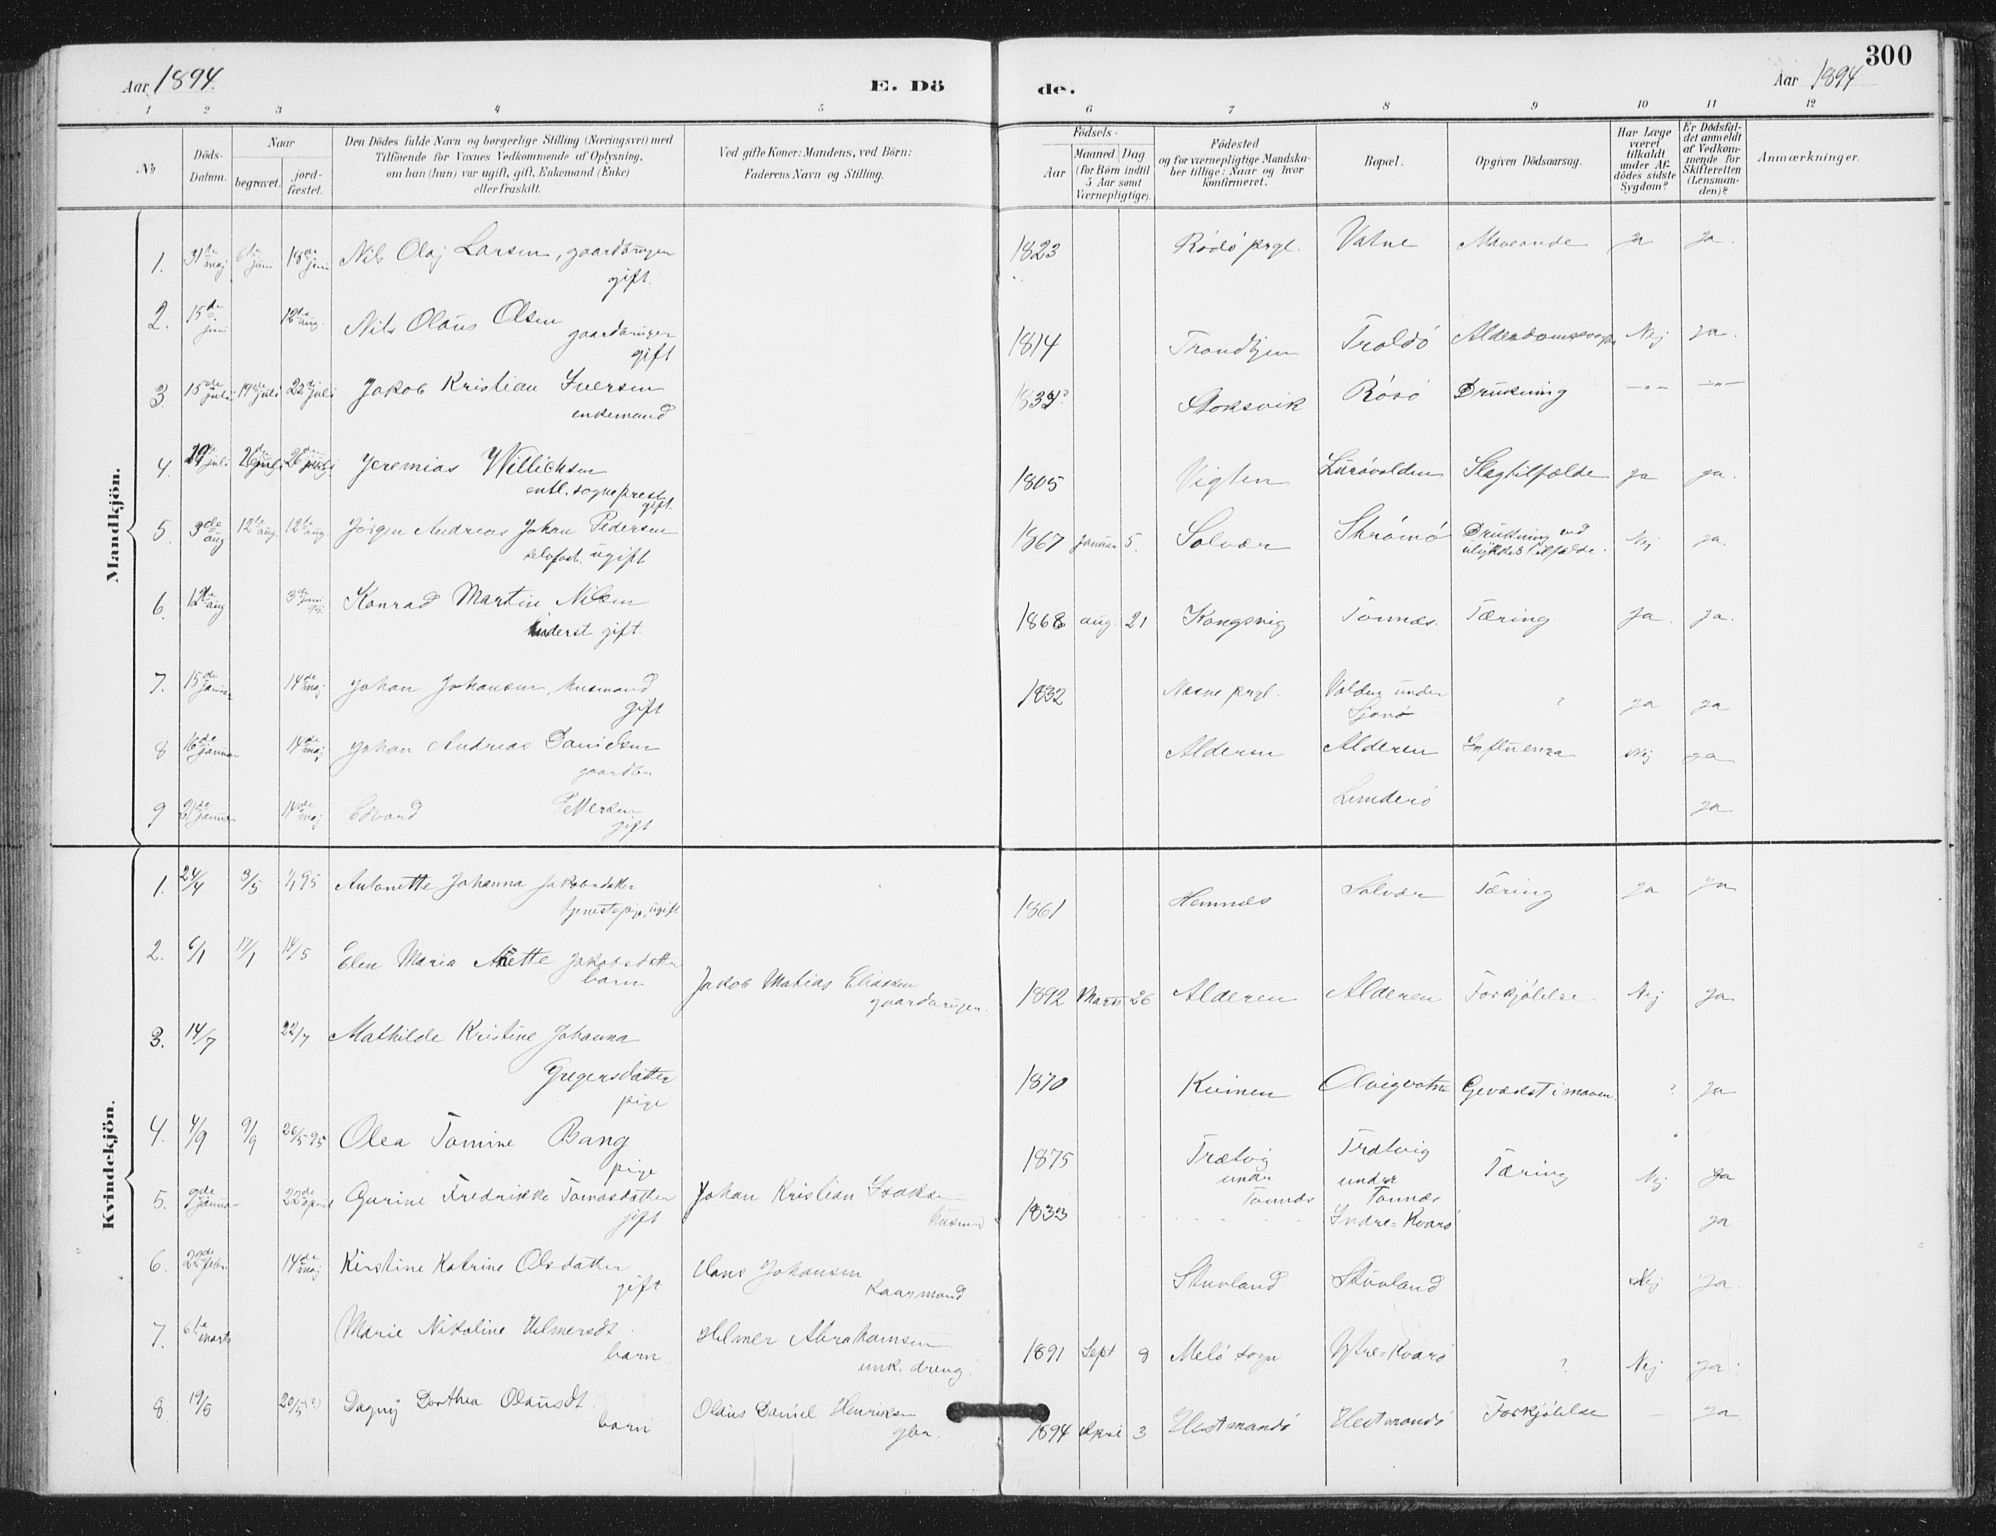 300
Aar 1894. E. Dö de. Aar 1894
1 2 3 4 5 6 7 8 9 10 11 12
No
Döds-
Datum.
Naar
begravet.
jord-
fæstet.
Den Dödes fulde Navn og borgerlige Stilling (Næringsvei) med
Tilföiende for Voxnes Vedkommende af Oplysning,
om han (hun) var ugift, gift, Enkemand (Enke)
eller fraskilt.
Ved gifte Koner: Mandens, ved Börn:
Faderens Navn og Stilling.
Födsels-
Aar
Maaned Dag
(for Börn indtil
5 Aar samt
Værnepligtige).
Födested
og for værnepligtige Mandska-
ber tillige: Naar og hvor
konfirmeret.
Bopæl.
Opgiven Dödsaarsag.
Har Læge
været
tilkaldt
under Af-
dödes sidste
Sygdom?
Er Dödsfal-
det anmeldt
af Vedkom-
mende for
Skifteretten
(Lensman-
den)?
Anmærkninger.
Mandkjön.
1. 31te maj 6te juni 18de juni Nils Olaj Larsen, gaardbruger 1823 Rödö prgl. Vatne Maveonde ja ja.
gift.
2. 15de juni 12te aug. Nils Olaus Olsen
gaardbruger 1814 Trondhjem Troldö Nej ja.
gift
3. 15de juli 19de juli 22de juli Jakob Kristian Iversen Stoksvik Rösö Drukning -"- -"-
enkemand
4. juli 26de juli Jeremias Willichsen 1805 Vigten Lurövolden Slagtilfælde ja ja.
entl. sogneprest
gift.
5. 3de aug 12te aug. 12te aug Jörgen Andreas Johan Pedersen 1867 januar 5. Solvær Strömö Drukning ved
ugift ulykkestilfælde. Nej ja.
6. 12te aug 3de juni 95. Konrad Martin Nilsen 1868 aug. 21 Kongsvig Tonnes. Tæring. ja. ja.
inderst gift.
7. 15de januar 14de maj Johan Johansen, husmand 1832 Nesne prgl. Valden under ? ja ja
gift Sjonö
8 16de januar 14de maj Johan Andreas Danielsen Alderen Alderen Influenza Nej ja
gaardbr.
9 januar 14de maj Edvard Pettersen Lunderö ja
gift
Kvindekjön.
1. 24/4 3/5 1/1 95 Antonette Johanna Jakobsdatter 1861 Hemnes Solvær Tæring ja ja
tjenestepige, ugift
2. 6/1 17/1 14/5 Elen Maria Anette Jakobsdatter
barn Jakob Matias Eliassen 1892 Marts 26 Alderen Alderen Forkjölelse Nej ja
gaardbruger.
3. 14/7 22/7 Mathilde Kristine Johanna
Gregersdatter 1870 Kvinen Olvigvatne Gevækst i maven ? ja
pige
4. 4/9 9/9 26/5 95 Olea Tomine Bang 1875 Trætvig Trætvig Tæring Nej ja
pige under under
Tonnes Tonnes
5. 9de januar 22de april Gurine Fredrikke Tomasdatter Johan Kristian Isaksen 1833 Indre-Kvarö ja
gift husmand
6. 22de febr. 14de maj Kirstine Katrine Olsdatter Hans Johansen Stuvland Stuvland Nej ja.
gift Kaarmand
7. 6te marts Marie Nikoline Helmersdt. Helmer Abrahamsen 1891 Sept 8 Melö sogn Ytre-Kvarö ? Nej ja.
barn unk. dreng.
8 19/5 20/5 Dagny Dorthea Olausdt. Olaus Daniel Henriksen 1894 April 3 Hestmandö Hestmandö Forkjölelse — ja
barn gbr.